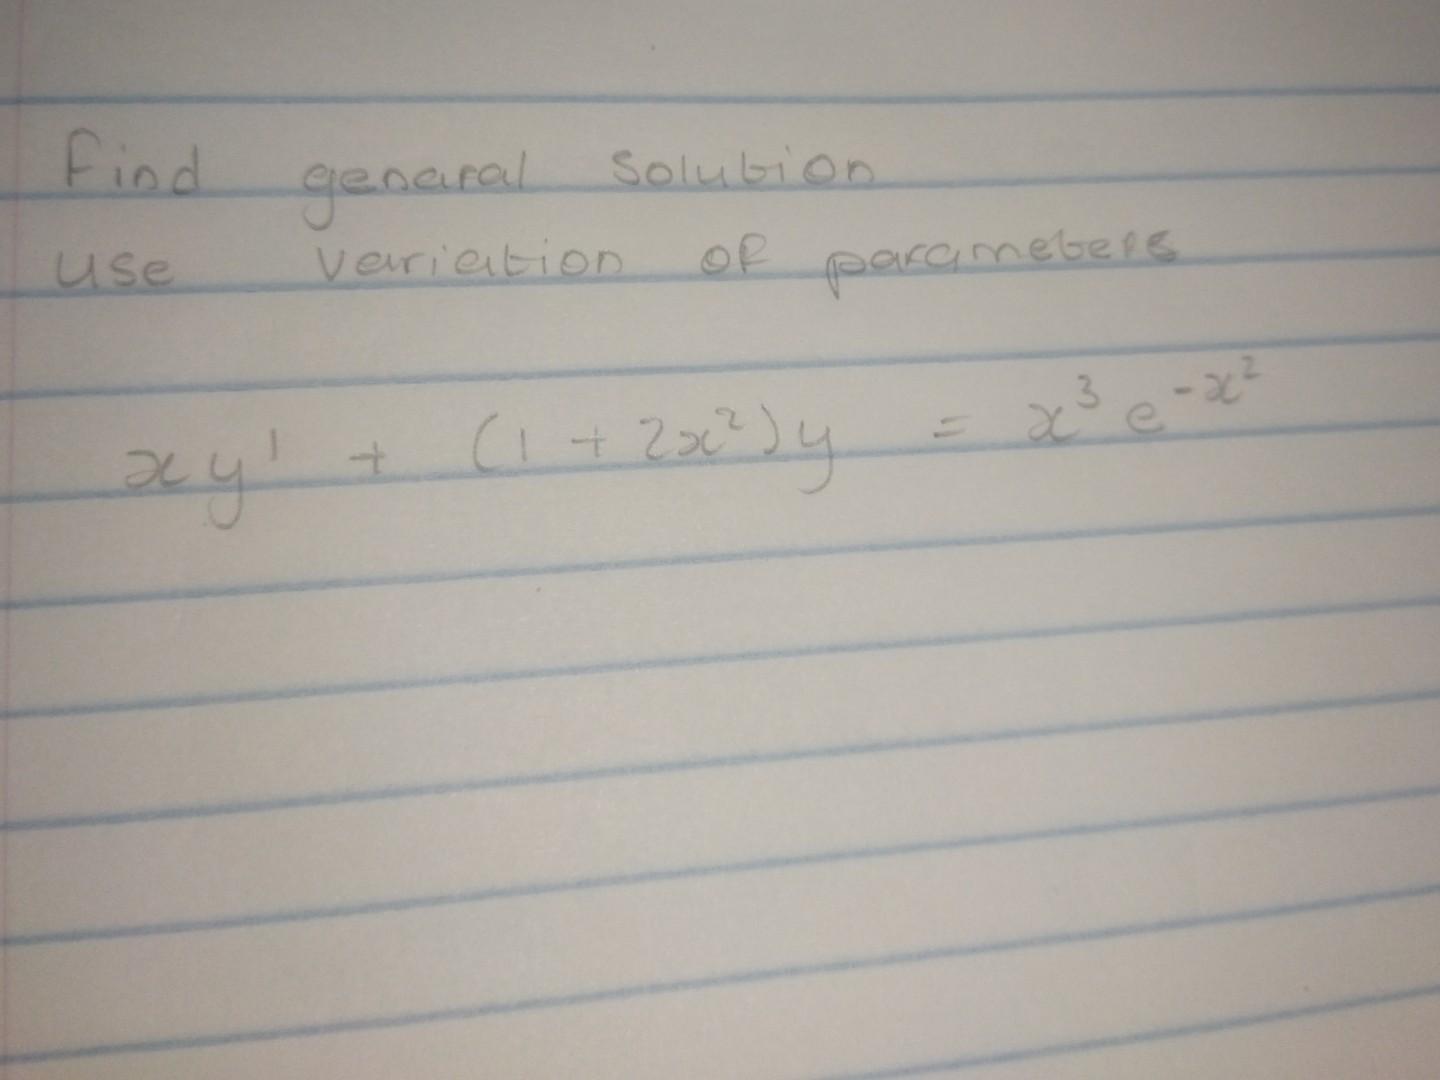 Find general solution
use variation of parameters
xy' + (1 + 2x²)y = x³ e^{-x²}